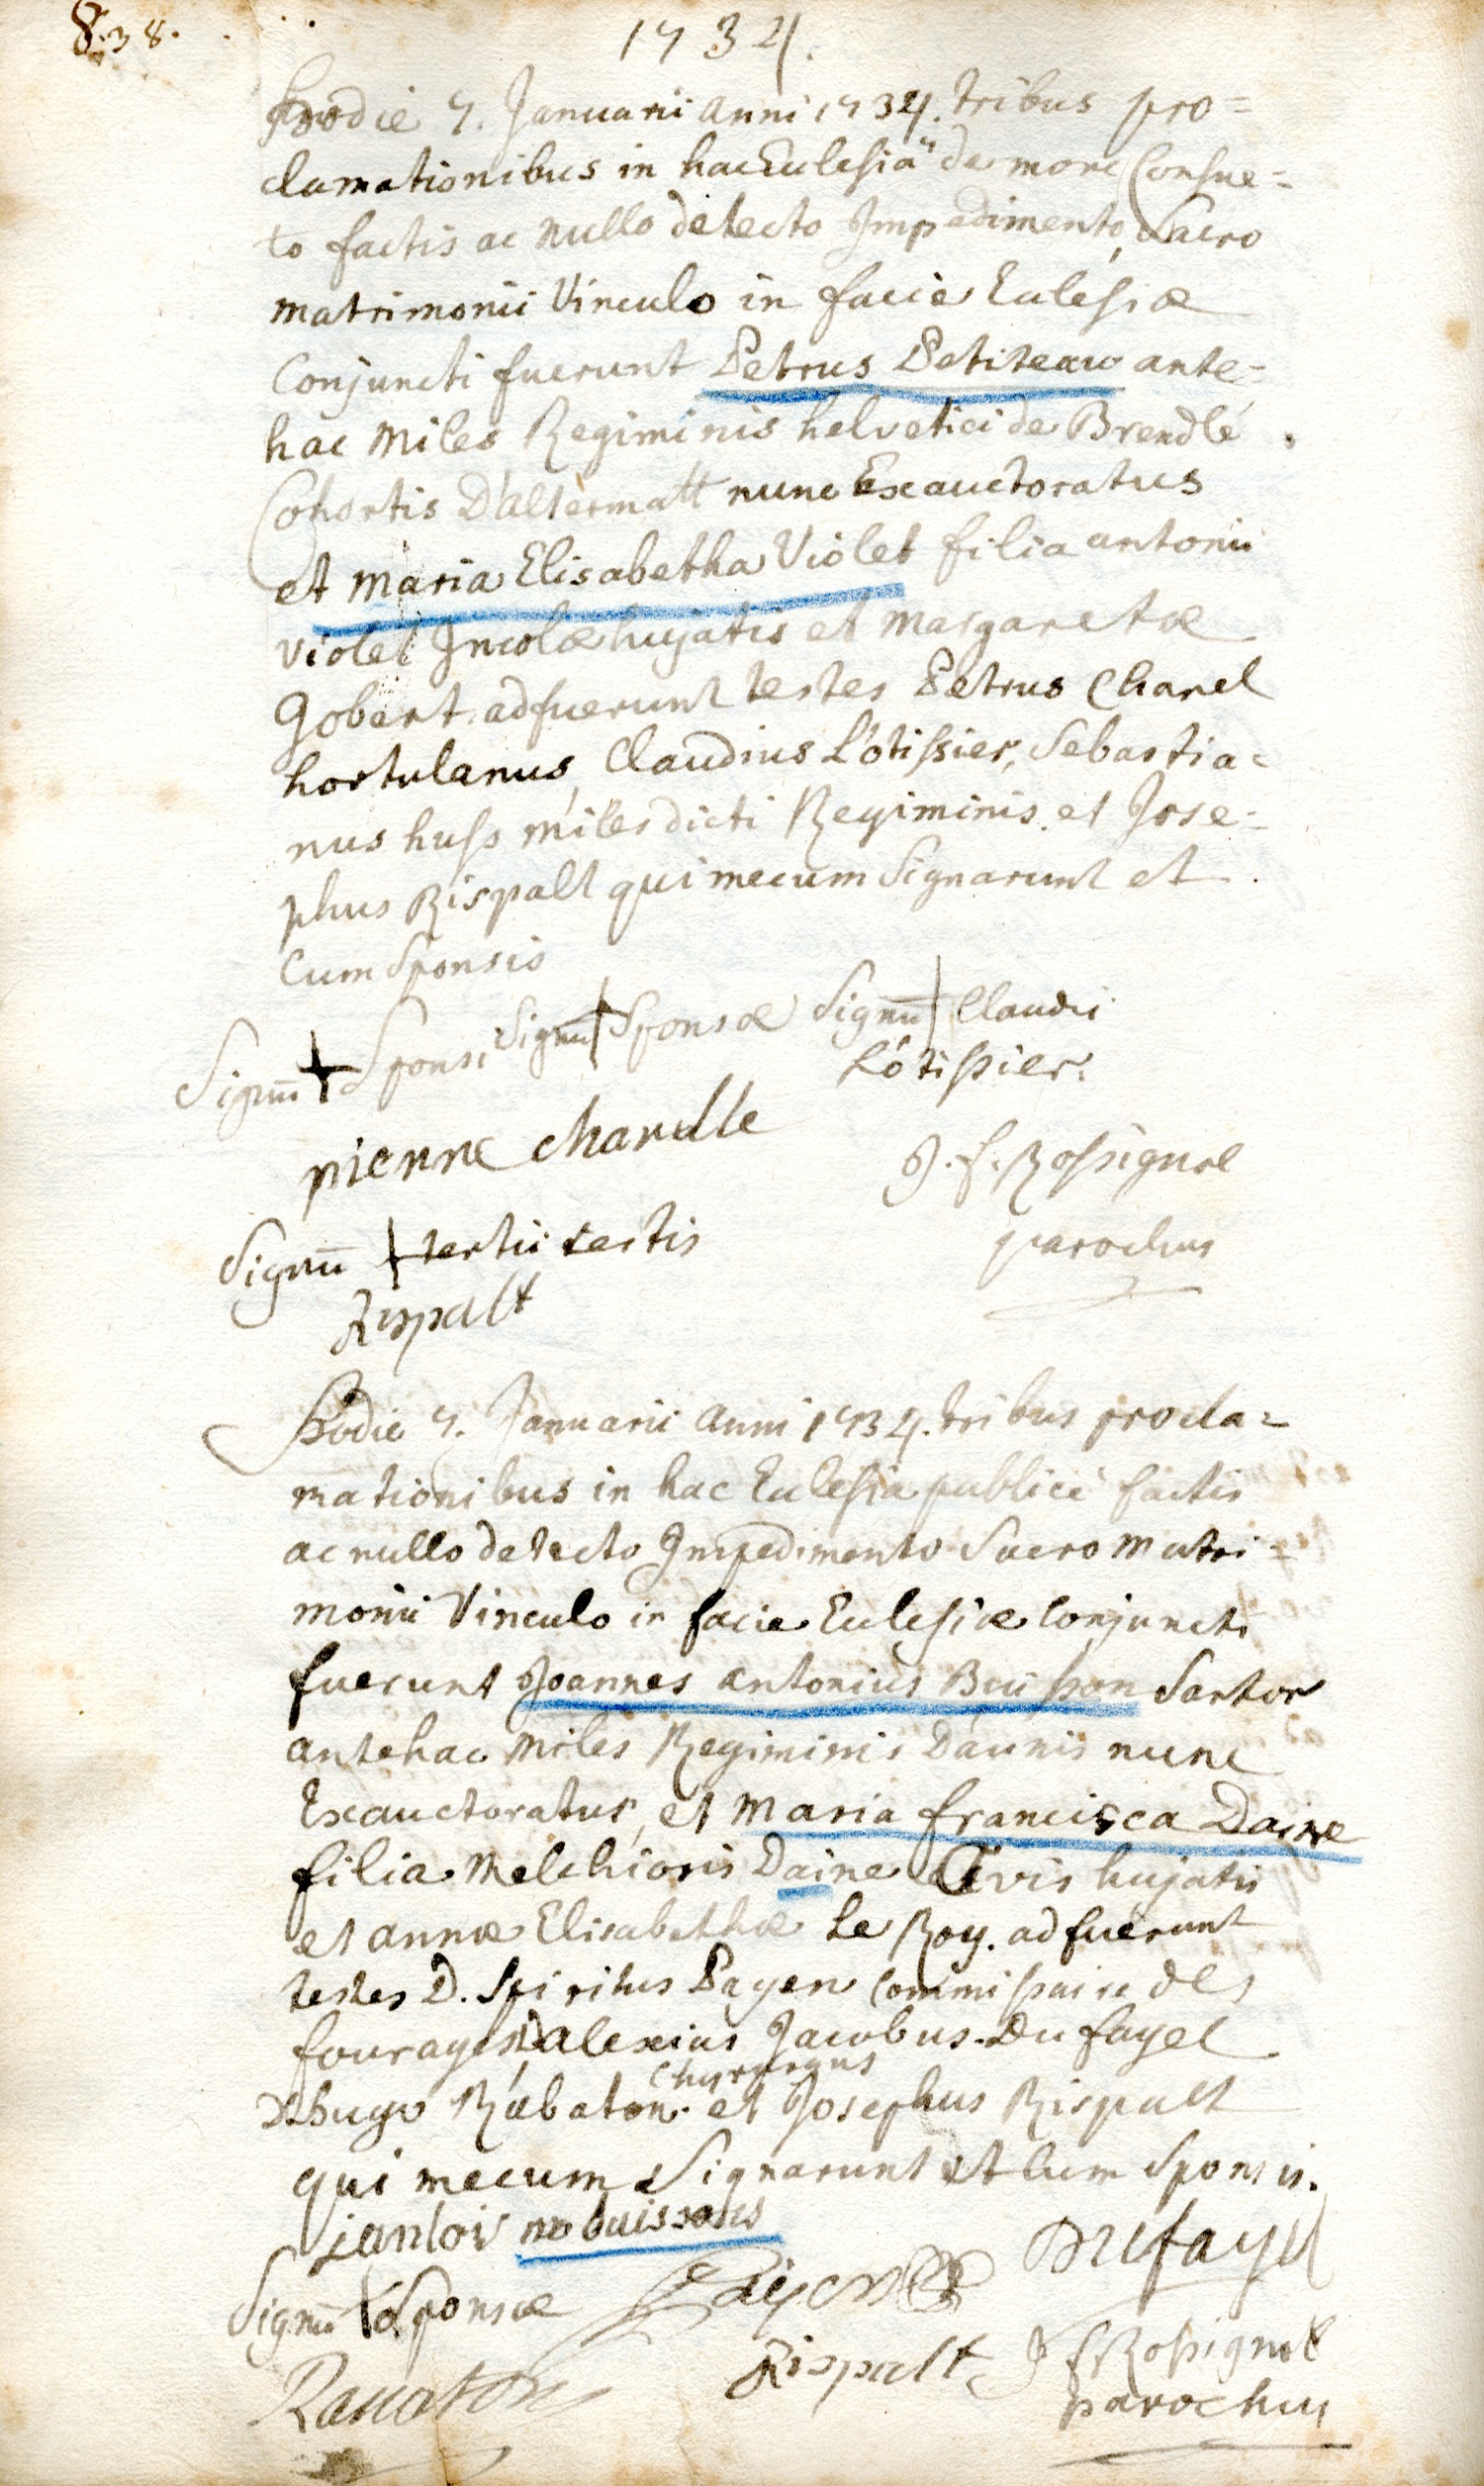 8.38.
1734.
Hodie 7. Januarii anni 1734. tribus pro=
clamationibus in hac Ecclesiâ de more Consue=
to factis ac nullo detecto Impedimento, Sacro
matrimonii Vinculo in facie Ecclesiæ
Conjuncti fuerunt Petrus Petiteau ante=
hac miles Regiminis helvetici de Brendlé
Cohortis D'altermatt nunc Exauctoratus
et maria Elisabetha Violet filia antonii
violet Incolæ hujatis et margaretæ
Gobert. adfuerunt testes Petrus Charel
hortulanus, Claudius L'ótissier, Sebastia=
nus huss miles dicti Regiminis et Jose=
phus Rispalt qui mecum Signarunt et
Cum Sponsis
Signū + Sponsi Signū + Sponsæ Signū + Claudii
L'ótissier.
pierre charelle
J. f. Rossignol
parochus
Signū + tertii testis
Rispalt
Hodie 7. Januarii anni 1734. tribus procla=
mationibus in hac Ecclesia publicè factis
ac nullo detecto Impedimento Sacro matri=
monii Vinculo in facie Ecclesiæ Conjuncti
fuerunt Joannes antonius Buisson Sartor
antehac miles Regiminis Daunis nunc
Exauctoratus, et maria francisca Daine
filia melchioris Daine Civis hujatis
et annæ Elisabethæ Le Roy. adfuerunt
testes D. Spiritus Payen Commissaire des
fourages, D. alexius Jacobus Du fayel
hugo Rabaton Chyrurgus et Josephus Rispalt
qui mecum Signarunt et Cum Sponsis.
buissons
Dufayel
Signū + Sponsæ Payen
Rispalt J f Rossignol
parochus